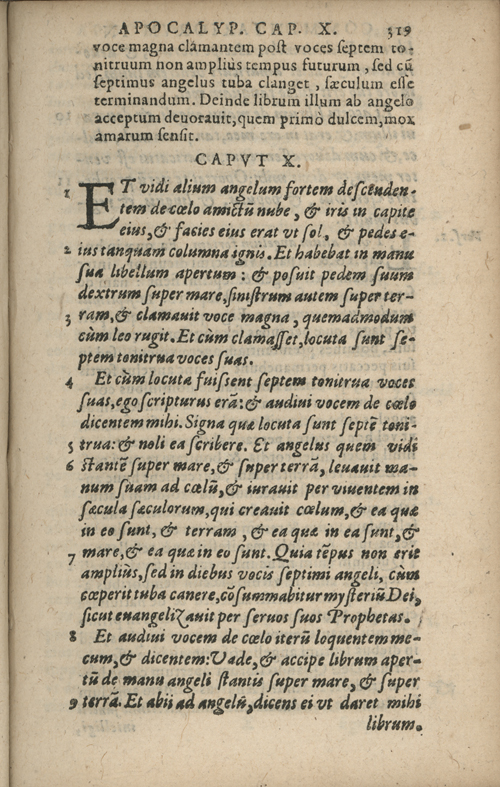 APOCALYP. CAP. X. 319
voce magna clamantem post voces septem to-
nitruum non amplius tempus futurum, sed cũ
septimus angelus tuba clanget, sæculum esse
terminandum. Deinde librum illum ab angelo
acceptum deuorauit, quem primò dulcem, mox
amarum sensit.
CAPVT X.
1 ET vidi alium angelum fortem descenden-
tem de cœlo amictũ nube, & iris in capite
eius, & facies eius erat vt sol, & pedes e-
2 ius tanquam columna ignis. Et habebat in manu
sua libellum apertum: & posuit pedem suum
dextrum super mare, sinistrum autem super ter-
3 ram, & clamauit voce magna, quemadmodum
cùm leo rugit. Et cùm clamasset, locuta sunt se-
ptem tonitrua voces suas.
4 Et cùm locuta fuissent septem tonitrua voces
suas, ego scripturus erã: & audiui vocem de cœlo
dicentem mihi. Signa quæ locuta sunt septẽ toni-
5 trua: & noli ea scribere. Et angelus quem vidi
6 stantẽ super mare, & super terrã, leuauit ma-
num suam ad cœlũ, & iurauit per viuentem in
sæcula sæculorum, qui creauit cœlum, & ea quæ
in eo sunt, & terram, & ea quæ in ea sunt, &
7 mare, & ea quæ in eo sunt. Quia tẽpus non erit
ampliùs, sed in diebus vocis septimi angeli, cùm
cœperit tuba canere, cõsummabitur mysteriũ Dei,
sicut euangelizauit per seruos suos Prophetas.
8 Et audiui vocem de cœlo iterũ loquentem me-
cum, & dicentem: Vade, & accipe librum aper-
tũ de manu angeli stantis super mare, & super
9 terrã. Et abii ad angelũ, dicens ei vt daret mihi
librum.